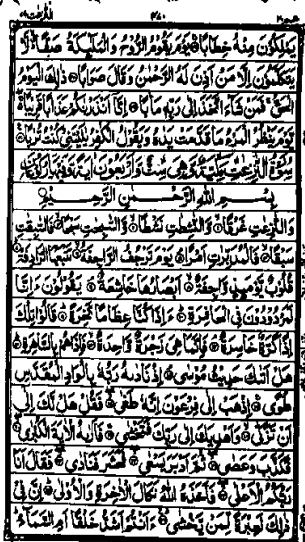 النّٰزعٰت ٧٩
عمّ ٣٠
يَمْلِكُوْنَ مِنْهُ خِطَابًا ۝ يَوْمَ يَقُوْمُ الرُّوْحُ وَالْمَلٰٓئِكَةُ صَفًّا ۙ لَّا
يَتَكَلَّمُوْنَ اِلَّا مَنْ اَذِنَ لَهُ الرَّحْمٰنُ وَقَالَ صَوَابًا ۝ ذٰلِكَ الْيَوْمُ
الْحَقُّ ۚ فَمَنْ شَآءَ اتَّخَذَ اِلٰى رَبِّهٖ مَاٰبًا ۝ اِنَّآ اَنْذَرْنٰكُمْ عَذَابًا قَرِيْبًا ۚ
يَّوْمَ يَنْظُرُ الْمَرْءُ مَا قَدَّمَتْ يَدٰهُ وَيَقُوْلُ الْكٰفِرُ يٰلَيْتَنِيْ كُنْتُ تُرٰبًا ۝
سُوْرَةُ النّٰزِعٰتِ مَكِّيَّةٌ وَّهِيَ سِتٌّ وَّاَرْبَعُوْنَ اٰيَةً وَّفِيْهَا رُكُوْعَانِ
بِسْمِ اللّٰهِ الرَّحْمٰنِ الرَّحِيْمِ
وَالنّٰزِعٰتِ غَرْقًا ۝ وَّالنّٰشِطٰتِ نَشْطًا ۝ وَّالسّٰبِحٰتِ سَبْحًا ۝ فَالسّٰبِقٰتِ
سَبْقًا ۝ فَالْمُدَبِّرٰتِ اَمْرًا ۝ يَوْمَ تَرْجُفُ الرَّاجِفَةُ ۝ تَتْبَعُهَا الرَّادِفَةُ ۝
قُلُوْبٌ يَّوْمَئِذٍ وَّاجِفَةٌ ۝ اَبْصَارُهَا خَاشِعَةٌ ۝ يَقُوْلُوْنَ ءَاِنَّا
لَمَرْدُوْدُوْنَ فِى الْحَافِرَةِ ۝ ءَاِذَا كُنَّا عِظَامًا نَّخِرَةً ۝ قَالُوْا تِلْكَ
اِذًا كَرَّةٌ خَاسِرَةٌ ۝ فَاِنَّمَا هِيَ زَجْرَةٌ وَّاحِدَةٌ ۝ فَاِذَا هُمْ بِالسَّاهِرَةِ ۝
هَلْ اَتٰىكَ حَدِيْثُ مُوْسٰى ۝ اِذْ نَادٰىهُ رَبُّهٗ بِالْوَادِ الْمُقَدَّسِ
طُوًى ۝ اِذْهَبْ اِلٰى فِرْعَوْنَ اِنَّهٗ طَغٰى ۝ فَقُلْ هَلْ لَّكَ اِلٰٓى
اَنْ تَزَكّٰى ۝ وَاَهْدِيَكَ اِلٰى رَبِّكَ فَتَخْشٰى ۝ فَاَرٰىهُ الْاٰيَةَ الْكُبْرٰى ۝
فَكَذَّبَ وَعَصٰى ۝ ثُمَّ اَدْبَرَ يَسْعٰى ۝ فَحَشَرَ فَنَادٰى ۝ فَقَالَ اَنَا
رَبُّكُمُ الْاَعْلٰى ۝ فَاَخَذَهُ اللّٰهُ نَكَالَ الْاٰخِرَةِ وَالْاُوْلٰى ۝ اِنَّ فِيْ
ذٰلِكَ لَعِبْرَةً لِّمَنْ يَّخْشٰى ۝ ءَاَنْتُمْ اَشَدُّ خَلْقًا اَمِ السَّمَآءُ